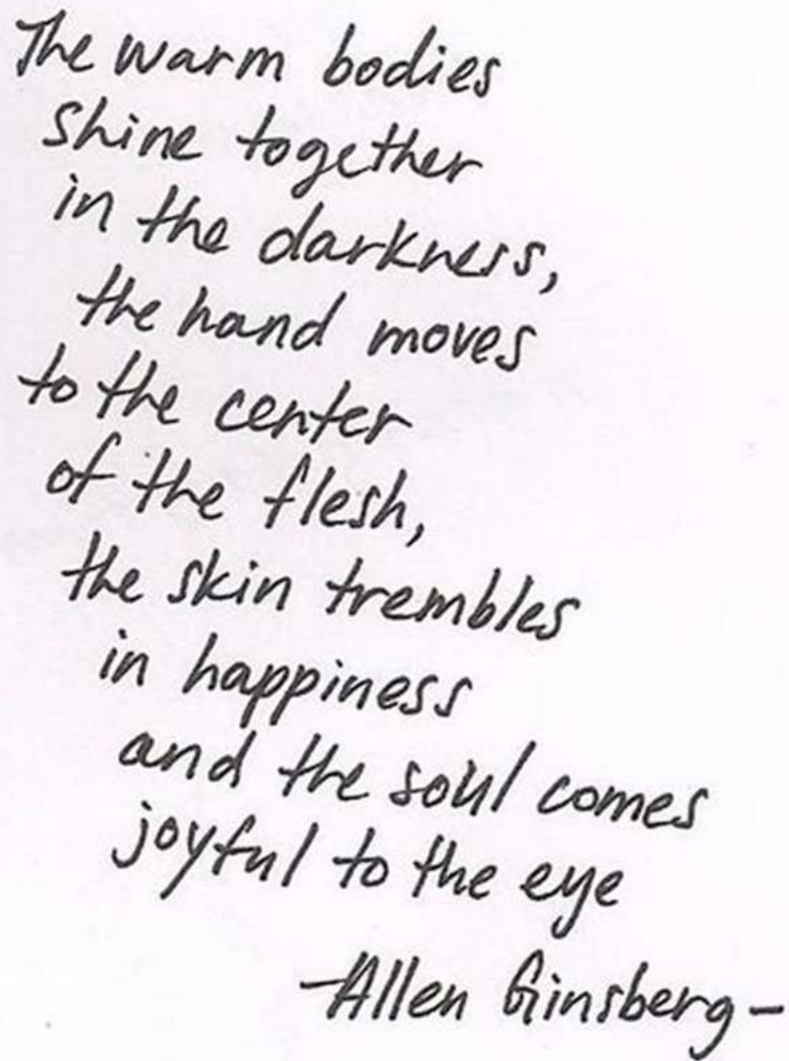 The warm bodies
shine together
in the darkness,
the hand moves
to the center
of the flesh,
the skin trembles
in happiness
and the soul comes
joyful to the eye
-Allen Ginsberg-